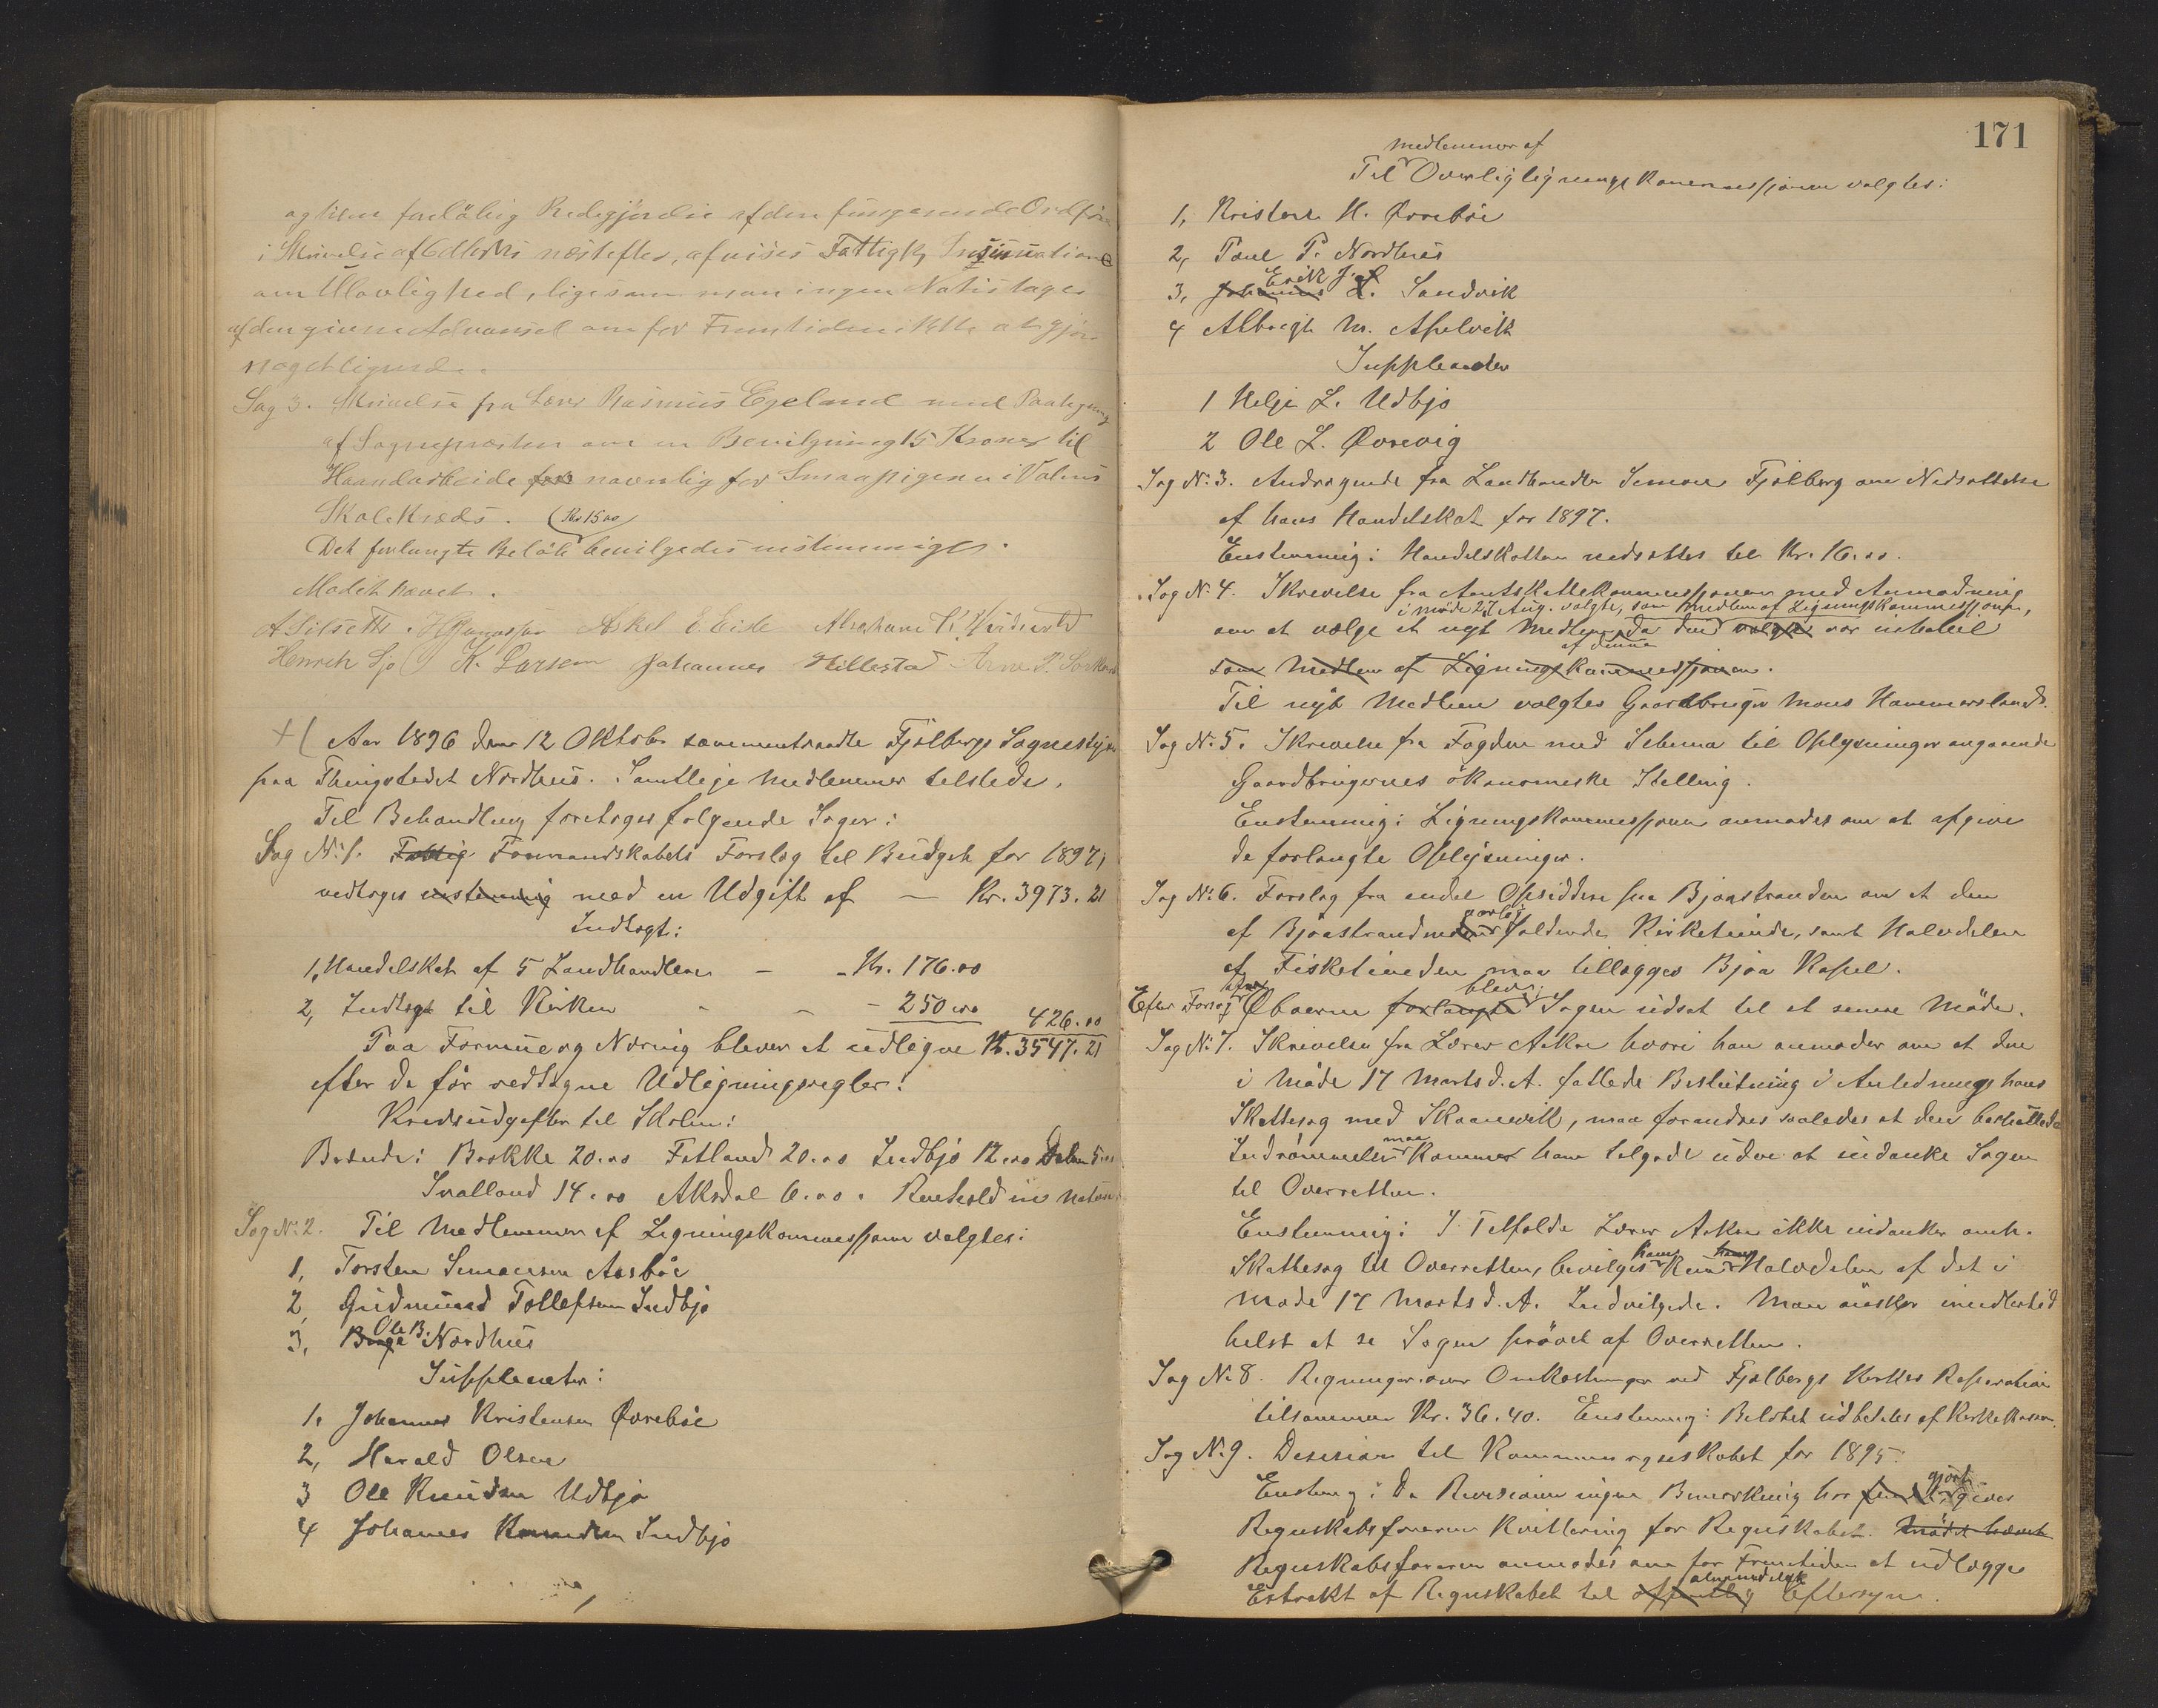 og den foreløbig Redegjørelse af den fungerende Ordfører
i Skrivelse af næstefter, afvises Fattigk, Insinuation
om Ulovlighed, ligesom man ingen Notis tager
af den givne Advarsel om for Fremtiden ikke at gjøre
noget lignende.
Sag 3. Skrivelse fra Lærer Rasmus Egeland med Paategning
af Sognepresten om en Bevilgning 15 Kroner til
Haandarbeide for navnlig for Smaapigerne i Valnes
Skolekreds. (Kr 15 00)
Det forlangte Beløb bevilgedes enstemmiges.
Mødet hævet.
A Silseth. H Askel E Eide Abraham
Henrik Sjo K. Larsen Johannes Hillestad Arne P.
+( Aar 1896 den 12 Oktober sammentraadte Fjelbergs Sognestyre
paa Thingstedet Nordhus. Samtlige Medlemmer tilstede.
Til Behandling foretoges følgende Sager:
Sag No 1. Fattig Formandskabets Forslag til Budget for 1897;
vedtoges enstemmig med en Udgift af — Kr. 3973.21
Indtægt:
1, Handelskat af 5 Landhandlere — - Kr. 176.00
2, Indtægt til Kirken - - - 250.00 426.00
Paa Formue og Næring bliver at udligne Kr. 3547.21
efter de før vedtagne Udligningsregler.
Kredsudgifter til Skolen:
Brænde: Brekke 20.00 Fatland 20.00 Indbjo 12.00
Svalland 14.00 Aksdal 6.00. Renhold in natura
Sag No 2. Til Medlemmer af Ligningskommissjonen valgtes:
1, Torsten Simonsen Aarbøe
2, Gudmund Tollefsen Indbjo
3, Børge Ole B. Nordhus
Suppleanter:
1, Johannes Kristensen Øvrebøe
2, Harald Olsen
3 Ole Knudsen Udbjo
4 Johannes Indbjo
171
medlemmer af
Til Overligligningskommissjonen valgtes:
1, Kristen H. Øvrebøe
2, Poul P. Nordhus
Erik J.
3, Johannes L. Sandvik
4 Albregt M. Apelvik
Suppleanter
1 Helje L. Udbjo
2 Ole L. Øvrevig
Sag No 3. Andragende fra Landhandler Simon Fjelberg om Nedsættelse
af hans Handelskat for 1897.
Enstemmig: Handelskatten nedsættes til Kr. 16.00.
Sag No 4. Skrivelse fra Amtskattekommissjonen med Anmodning
i møde 27 Aug. valgte, som medlem af Ligningskommissjonen,
om at vælge et nyt Medlem da den valgte var inhabil
af denne
som Medlem af Ligningskommissjonen.
Til nyt Medlem valgtes Gaardbruger Mons Hammersland.
Sag No 5. Skrivelse fra Fogden med Schema til Oplysninger angaaende
Gaardbrugernes økonomiske Stilling.
Enstemmig: Ligningskommissjonen anmodes om at afgive
de forlangte Oplysninger.
Sag No 6. Forslag fra endel Opsiddere paa Bjoastranden om at den
aarlig
af Bjoastranden faldende Kirketiende, samt Halvdelen
af Fisketienden maa tillægges Bjoa Kapel.
blev
Efter Forslag af Øboerne forlangte Sagen udsat til et senere Møde.
Sag No 7. Skrivelse fra Lærer Aakre hvori han anmoder om at den
i Møde 17 Marts d. A. fattede Beslutning i Anledning hans
Skattesag med Skaanevik, maa forandres saaledes at den besluttede
maa
Indrømmelse kommer ham tilgode uden at indanke Sagen
til Overretten.
Enstemmig: I Tilfælde Lærer Aakre ikke indanker omh.
ham ham
Skattesag til Overretten, bevilges kun Halvdelen af det i
Møde 17 Marts d. A. Indvilgede. Man ønsker imidlertid
helst at se Sagen prøvet af Overretten.
Sag No 8. Regninger over Omkostninger ved Fjelbergs Kirkes Reparation
tilsammen Kr. 36.40. Enstemmig: Beløbet udbetales af Kirkekassen.
Sag No 9. Desision til Kommuneregnskabet for 1895.
gjort
Enstemmig: Da Revisionen ingen Bemærkning har gives
Regnskabsføreren Kvittering for Regnskabet. Mødet hævet
Regnskabsføreren anmodes om for Fremtiden at udlægge
almindeligt
Extrakt af Regnskabet til offentlig Eftersyn.